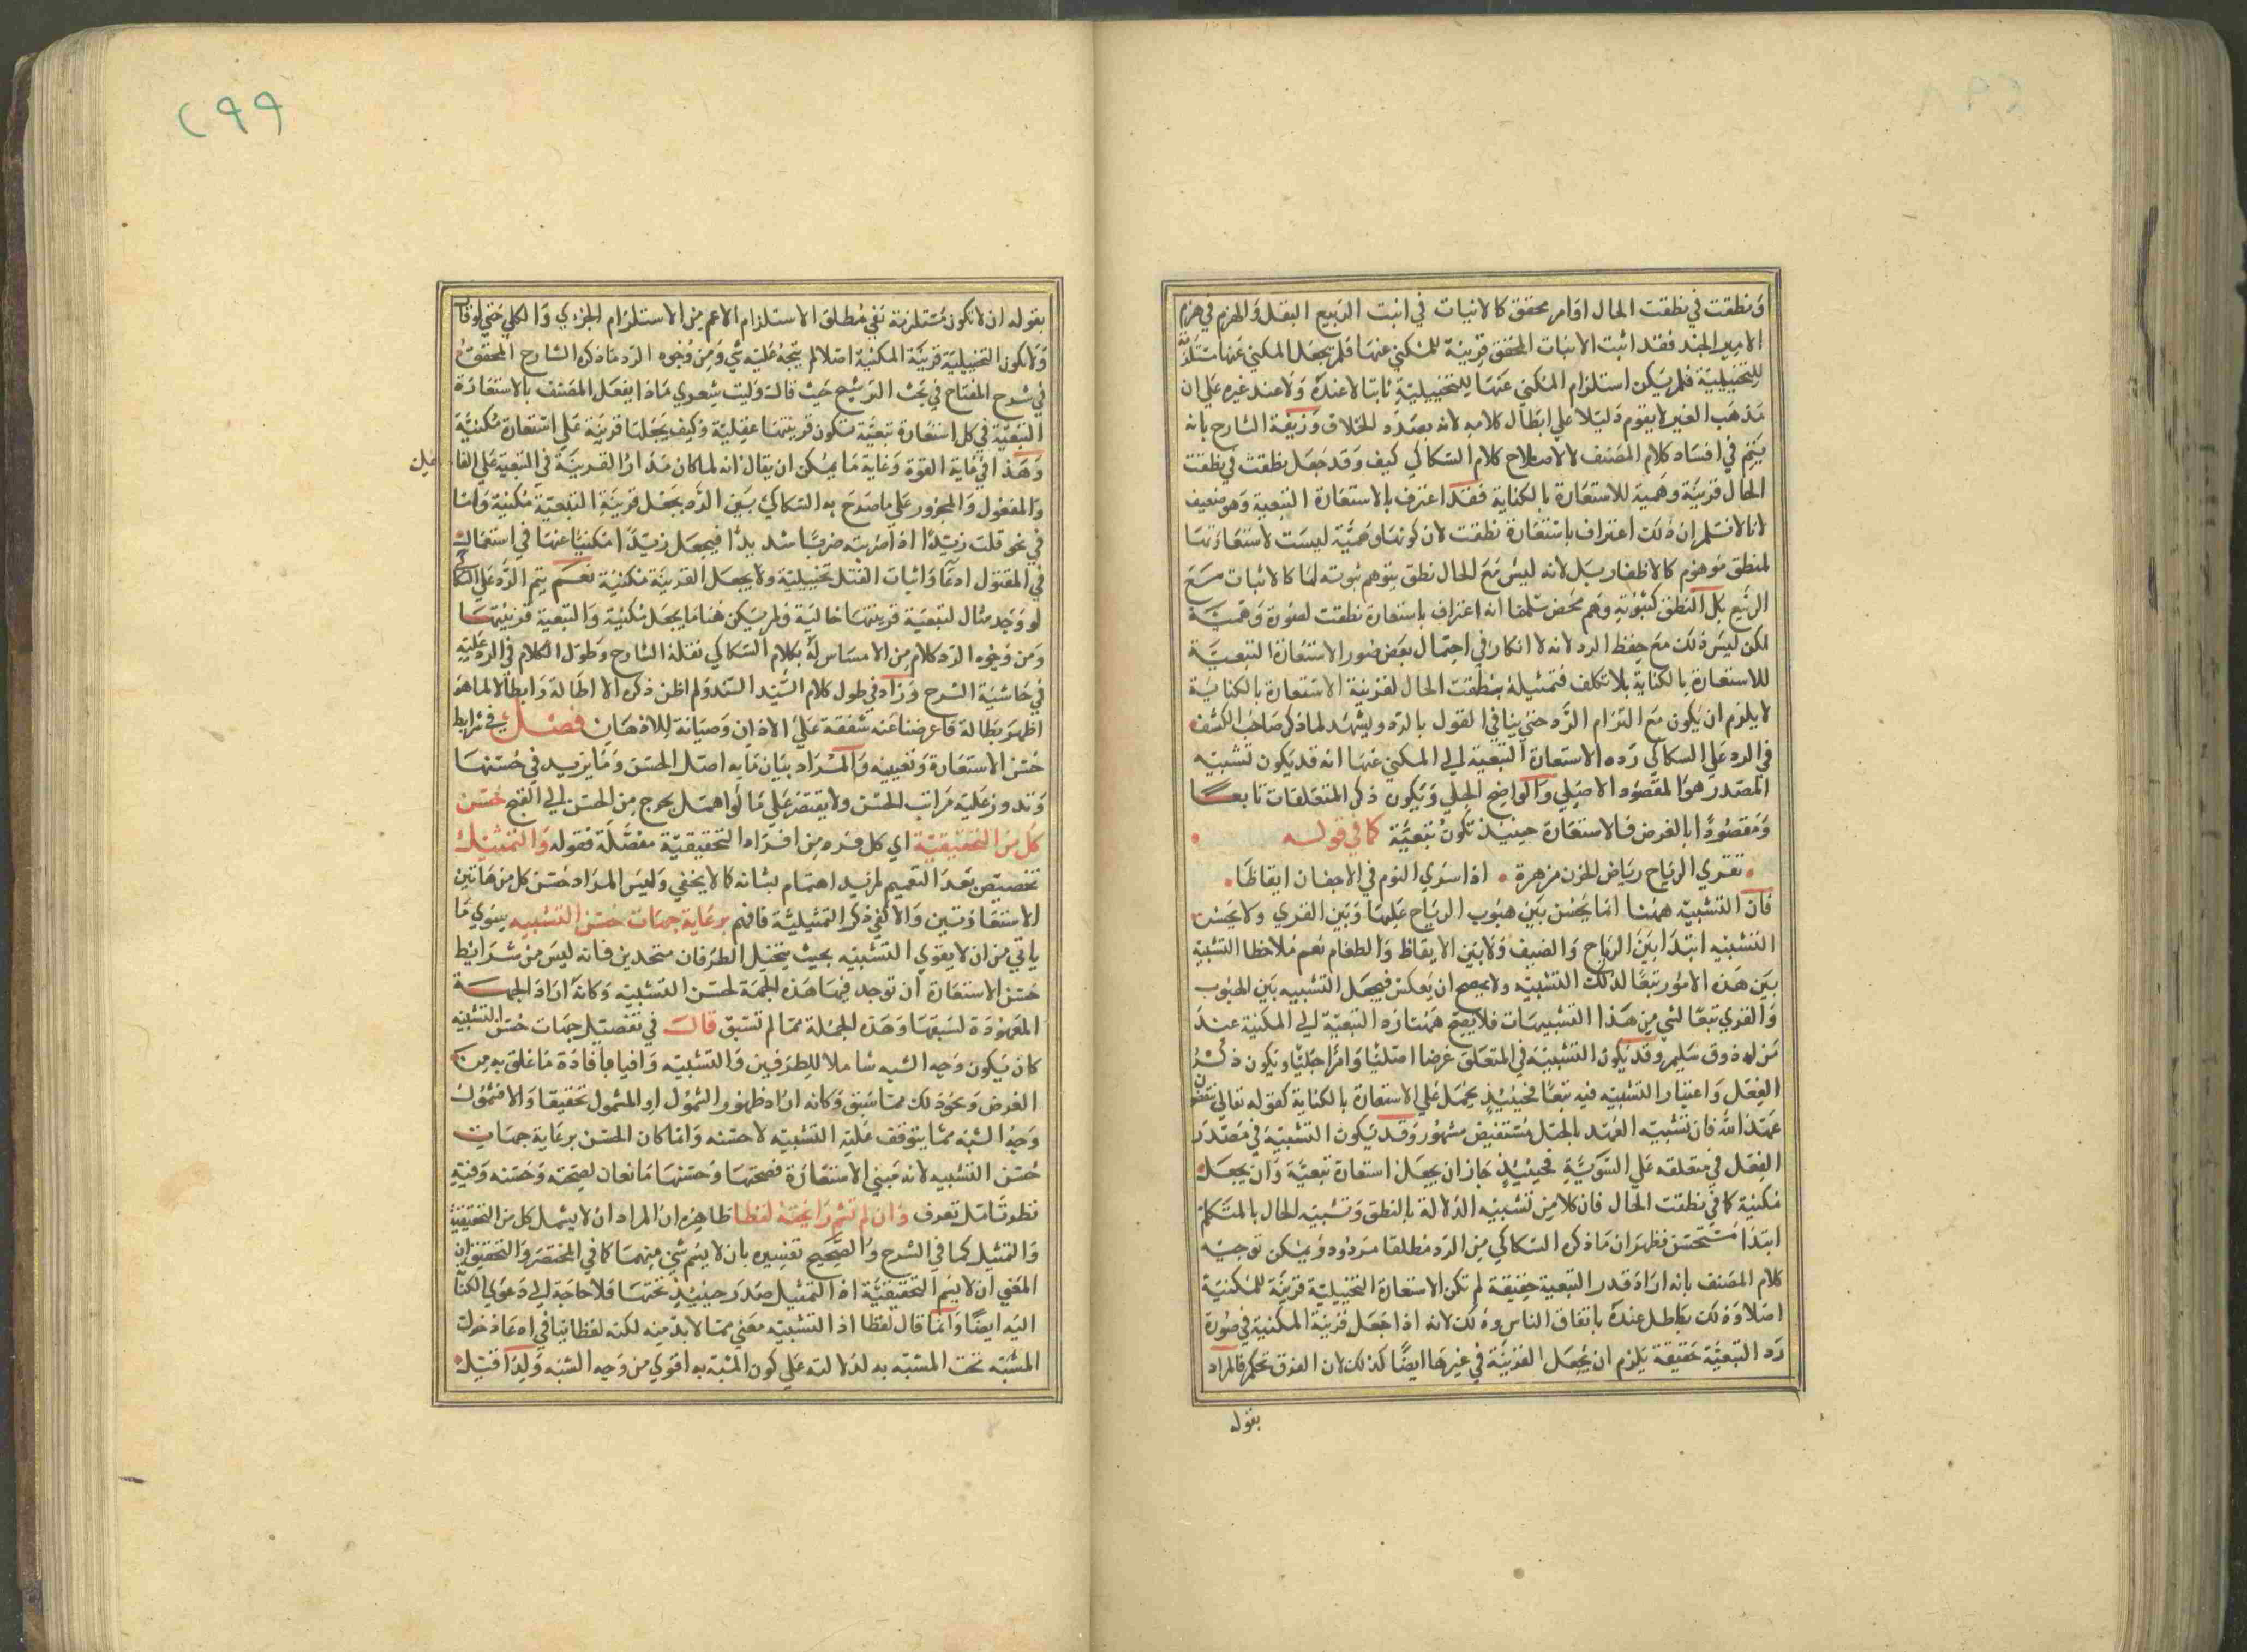 ونطقت في نطقت الحال او امر محقق كالانبات في انبت الربيع البقل والهزم في هزم
الامير الجند فقد اثبت الاثبات المحقق قرينة للمكني عنها فلم يجعل المكني عنها مستلزمة
للتخييلية فلم يكن استلزام المكني عنها للتخييلية ثابتا لا عنده ولا عند غيره على ان
مذهب الغير لا يقوم دليلا على ابطال كلامه لانه بصدد الخلاف وزيفه الشارح بانه
يتم في افساد كلام المصنف لا لاصلاح كلام السكاكي كيف وقد جعل نطقت في نطقت
الحال قرينة وهمية للاستعارة بالكناية فقد اعترف بالاستعارة التبعية وهو ضعيف
لانا لا نسلم ان ذلك اعتراف باستعارة نطقت لان كونها وهمية ليست لاستعارتها
لمنطق موهوم كالاظفار بل لانه ليس مع الحال نطق يتوهم ثبوته لها كالاثبات مع
الربيع بل النطق كثبوته وهم محض سلمنا انه اعتراف باستعارة نطقت لصورة وهمية
لكن ليس ذلك مع حفظ الرد لانه لا انكار في احتمال بعض صور الاستعارة التبعية
للاستعارة بالكناية بلا تكلف فتمثيله بنطقت الحال لقرينة الاستعارة بالكناية
لا يلزم ان يكون مع التزام الرد حتى ينافي القول بالرد وليشهد لما ذكر صاحب الكشف
في الرد على السكاكي رده الاستعارة التبعية الى المكني عنها انه قد يكون تشبيه
المصدر هو المقصود الاصلي والواضح الجلي ويكون ذكر المتعلقات تابعا
ومقصودا بالفرض فالاستعارة حينئذ تكون تبعية كما في قوله
تقري الرياح رياض الحزن مزهرة اذا سرى النوم في الاجفان ايقاظا
فان التشبيه ههنا انما يحسن بين هبوب الرياح عليها وبين القرى ولا يحسن
التشبيه ابتدا بين الرياح والضيف ولا بين الايقاظ والطعام نعم ملاحظا التشبيه
بين هذه الامور تبعا لذلك التشبيه ولا يصح ان يعكس فيجعل التشبيه بين الهبوب
والقرى تبعا لشي من هذا التشبيهات فلا يصح ههنا رد التبعية الى المكنية عند
من له ذوق سليم وقد يكون التشبيه في المتعلق غرضا اصليا وامرا جليا ويكون ذكر
الفعل واعتبار التشبيه فيه تبعا فحينئذ يحمل على الاستعارة بالكناية كقوله تعالى ينقضون
عهد الله فان تشبيه العهد بالحبل مستفيض مشهور وقد يكون التشبيه في مصدر
الفعل في متعلقه على السوية فحينئذ جاز ان يجعل استعارة تبعية وان يجعل
مكنية كما في نطقت الحال فان كلا من تشبيه الدلالة بالنطق وتشبيه الحال بالمتكلم
ابتدا مستحسن فظهر ان ما ذكره السكاكي من الرد مطلقا مردود ويمكن توجيه
كلام المصنف بانه اراد قدر التبعية حقيقة لم تكن الاستعارة التخييلية قرينة للمكنية
اصلا وذلك باطل عنده باتفاق الناس وذلك لانه اذا جعل قرينة المكنية في صورة
رد التبعية حقيقة يلزم ان يجعل القرينة في غيرها ايضا كذلك لان الفرق تحكم فالمراد
بقوله
٢٩٩
بقوله ان لا تكون مستلزمة نفي مطلق الاستلزام الاعم من الاستلزام الجزئي والكلي حتى لو قال
ولا تكون التخييلية قرينة المكنية اصلا لم يتجه عليه شي ومن وجوه الرد ما ذكره الشارح المحقق
في شرح المفتاح في بحث الترشيح حيث قال وليت شعري ماذا يفعل المصنف بالاستعارة
التبعية في كل استعارة تبعية تكون قرينتها عقلية وكيف يجعلها قرينة على استعارة مكنية
وهذا في غاية القوة وغاية ما يمكن ان يقال انه لما كان مدار القرينة في التبعية على الفا عل
والمفعول والمجرور على ما صرح به السكاكي بين الرد بجعل قرينة التبعية مكنية واما
في نحو قلت زيدا اذا ضربته ضربا شديدا فيجعل زيدا مكنيا عنها في استعماله
في المقتول ادعا واثبات القتل تخييلية ولا يجعل القرينة مكنية نعم يتم الرد على السكاكي
لو وجد مثال لتبعية قرينتها حالية ولم يكن هنا ما يجعل مكنية والتبعية قرينتها
ومن وجوه الرد كلام من لا مساس له بكلام السكاكي نقله الشارح وطول الكلام في الرد عليه
في حاشية الشرح وزاد في طول كلام السيد السند ولم اظن ذكره الا اطالة وابطالا لما هو
اظهر بطالة فاعرضنا عنه شفقة على الاذان وصيانة للاذهان فصل في شرايط
حسن الاستعارة وتعيينه والمراد بيان ما به اصل الحسن وما يزيد في حسنها
وتدور عليه مراتب الحسن ولا يقتصر على ما لو اهمل يخرج من الحسن الى القبح حسن
كل من التحقيقية اي كل فرد من افراد التحقيقية مفصلة فقوله والتمثيل
تخصيص بعد التعميم لمزيد اهتمام بشانه كما لا يخفى وليس المراد حسن كل من هاتين
الاستعارتين والا لكفى ذكر التمثيلية فافهم برعاية جهات حسن التشبيه سوى ما
ياتي من ان لا يقوى التشبيه بحيث يتخيل الطرفان متحدين فانه ليس من شرايط
حسن الاستعارة ان توجد فيها هذه الجهة لحسن التشبيه وكانه اراد الجهة
المعهودة لسبقها وهذه الجملة مما لم تسبق قال في تفصيل جهات حسن التشبيه
كان يكون وجه الشبه شاملا للطرفين والتشبيه وافيا بافادة ما علق به من
الغرض ونحو ذلك مما سبق وكانه اراد ظهور الشمول او المشمول تحقيقا والا فشمول
وجه الشبه مما يتوقف عليه التشبيه لا حسنه وانما كان الحسن برعاية جهات
حسن التشبيه لانه مبني الاستعارة فصحتها وحسنها تابعان لصحته وحسنه وفيه
نظر تامل تعرف وان لم تشم رائحته لفظا ظاهره ان المراد ان لا يشمل كل من التحقيقية
والتمثيل كما في الشرح والصحيح تفسيره بان لا يشم شي منهما كما في المختصر والتحقيق ان
المعنى ان لا يشم التحقيقية اذ التمثيل صدر حينئذ تحتها فلا حاجة الى دعوى الكناية
اليه ايضا وانما قال لفظا اذ التشبيه معنى مما لا بد منه لكنه لفظا ينافي ادعاء دخول
المشبه تحت المشبه به لدلالته على كون المشبه به اقوى من وجه الشبه ولذا قيل